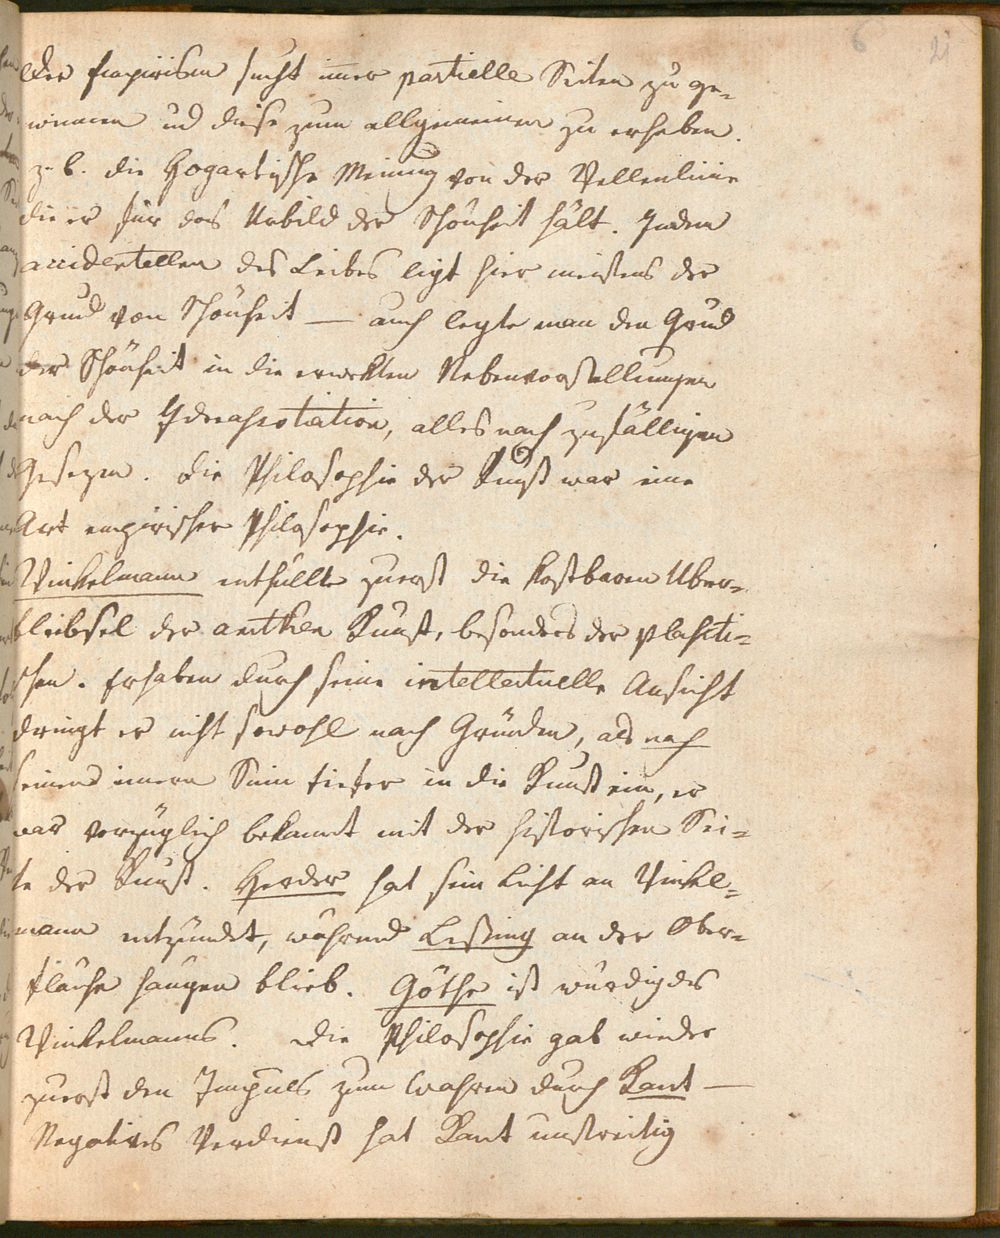 6 21
Der Empirism sucht immer partielle Seiten zu ge-
winnen und diese zum allgemeinen zu erheben.
z. b. die Hogartische Meinung von der Wellenlinie
die er für das Urbild der Schönheit hält. In den
accidentellen des Leibes ligt hier meistens der
Grund von Schönheit — auch legte man den Grund
der Schönheit in die erwekten Nebenvorstellungen
nach der Ideeassotiation, alles nach zufälligen
Gesezen. Die Philosophie der Kunst war eine
Art empirischer Philosophie.
Winkelmann enthüllte zuerst die kostbaren Über-
bleibsel der antiken Kunst, besonders der plasti-
schen. Erhaben durch seine intellectuelle Ansicht
dringt er nicht sowohl nach Gründen, als nach
seinem innern Sinn tiefer in die Kunst ein, er
war vorzüglich bekannt mit der historischen Sei-
te der Kunst. Herder hat sein Licht an Winkel-
mann entzündet, während Leßing an der Ober-
fläche hangen blieb. Göthe ist würdig des
Winkelmanns. Die Philosophie gab wieder
zuerst den Impuls zum Wahren durch Kant —
Negatives Verdienst hat Kant unstreitig